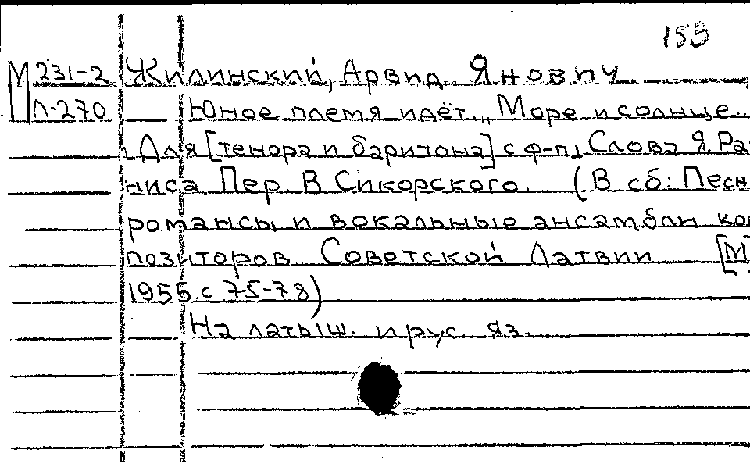 155
М 231-2 Жилинский, Арвид Янович
Л-270 Юное племя идёт. „Море и солнце..
Для [тенора и баритона] с ф-п. Слова Я. Рай
ниса Пер. В Сикорского. (В сб: Песн
романсы и вокальные ансамбли ком
позиторов Советской Латвии [М]
1955. с 75-78)
На латыш. и рус. яз.